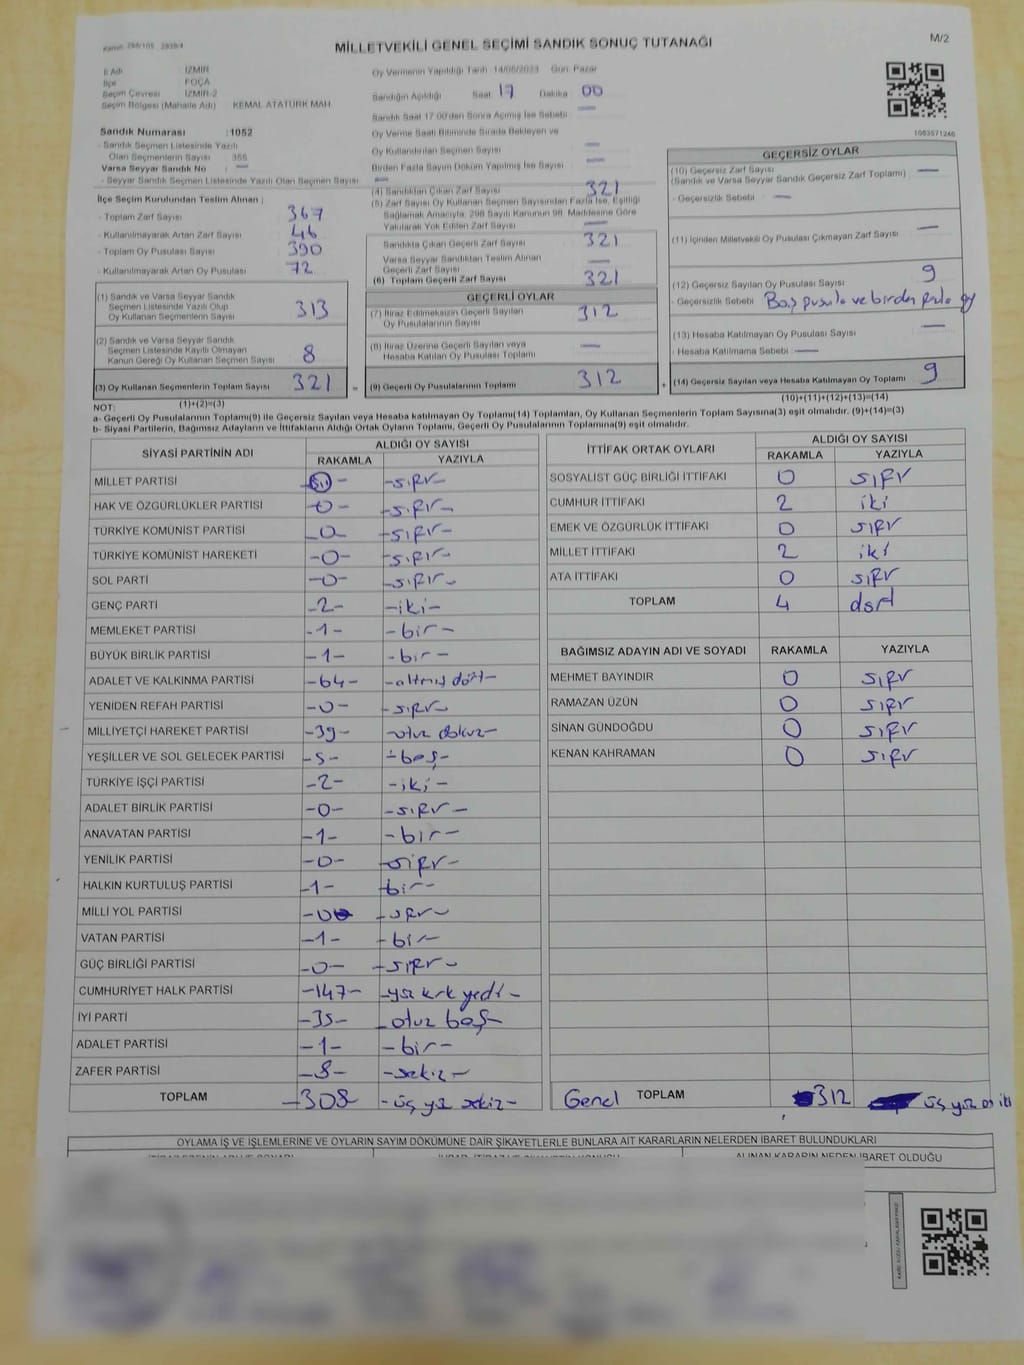 Kanun: 298/105 , 2839/4
MİLLETVEKİLİ GENEL SEÇİMİ SANDIK SONUÇ TUTANAĞI
M/2
İl Adı İZMİR
İlçe FOÇA
Seçim Çevresi İZMİR-2
Seçim Bölgesi (Mahalle Adı) KEMAL ATATÜRK MAH
Sandık Numarası :1052
- Sandık Seçmen Listesinde Yazılı
Olan Seçmenlerin Sayısı 355
Varsa Seyyar Sandık No —
- Seyyar Sandık Seçmen Listesinde Yazılı Olan Seçmen Sayısı —
İlçe Seçim Kurulundan Teslim Alınan ;
- Toplam Zarf Sayısı 367
- Kullanılmayarak Artan Zarf Sayısı 46
- Toplam Oy Pusulası Sayısı 390
- Kullanılmayarak Artan Oy Pusulası 72
(1) Sandık ve Varsa Seyyar Sandık
Seçmen Listesinde Yazılı Olup
Oy Kullanan Seçmenlerin Sayısı 313
(2) Sandık ve Varsa Seyyar Sandık
Seçmen Listesinde Kayıtlı Olmayan
Kanun Gereği Oy Kullanan Seçmen Sayısı 8
(3) Oy Kullanan Seçmenlerin Toplam Sayısı 321
(1)+(2)=(3)
Oy Vermenin Yapıldığı Tarih 14/05/2023 Gün: Pazar
Sandığın Açıldığı Saat 17 Dakika 00
Sandık Saat 17:00'den Sonra Açılmış İse Sebebi —
Oy Verme Saati Bitiminde Sırada Bekleyen ve
Oy Kullandırılan Seçmen Sayısı —
Birden Fazla Sayım Döküm Yapılmış İse Sayısı —
(4) Sandıktan Çıkan Zarf Sayısı 321
(5) Zarf Sayısı Oy Kullanan Seçmen Sayısından Fazla İse, Eşitliği
Sağlamak Amacıyla, 298 Sayılı Kanunun 98. Maddesine Göre
Yakılarak Yok Edilen Zarf Sayısı —
Sandıkta Çıkan Geçerli Zarf Sayısı 321
Varsa Seyyar Sandıktan Teslim Alınan
Geçerli Zarf Sayısı —
(6) Toplam Geçerli Zarf Sayısı 321
GEÇERLİ OYLAR
(7) İtiraz Edilmeksizin Geçerli Sayılan
Oy Pusulalarının Sayısı 312
(8) İtiraz Üzerine Geçerli Sayılan veya
Hesaba Katılan Oy Pusulası Toplamı —
= (9) Geçerli Oy Pusulalarının Toplamı 312 +
1053571246
GEÇERSİZ OYLAR
(10) Geçersiz Zarf Sayısı
(Sandık ve Varsa Seyyar Sandık Geçersiz Zarf Toplamı) —
- Geçersizlik Sebebi —
(11) İçinden Milletvekili Oy Pusulası Çıkmayan Zarf Sayısı —
(12) Geçersiz Sayılan Oy Pusulası Sayısı 9
- Geçersizlik Sebebi Boş pusula ve birden fazla oy
(13) Hesaba Katılmayan Oy Pusulası Sayısı —
- Hesaba Katılmama Sebebi —
(14) Geçersiz Sayılan veya Hesaba Katılmayan Oy Toplamı 9
(10)+(11)+(12)+(13)=(14)
NOT:
a- Geçerli Oy Pusulalarının Toplamı(9) ile Geçersiz Sayılan veya Hesaba katılmayan Oy Toplamı(14) Toplamları, Oy Kullanan Seçmenlerin Toplam Sayısına(3) eşit olmalıdır. (9)+(14)=(3)
b- Siyasi Partilerin, Bağımsız Adayların ve İttifakların Aldığı Ortak Oyların Toplamı, Geçerli Oy Pusulalarının Toplamına(9) eşit olmalıdır.
SİYASİ PARTİNİN ADI ALDIĞI OY SAYISI
RAKAMLA YAZIYLA
MİLLET PARTİSİ -sıfır-
HAK VE ÖZGÜRLÜKLER PARTİSİ -0- -sıfır-
TÜRKİYE KOMÜNİST PARTİSİ -0- -sıfır-
TÜRKİYE KOMÜNİST HAREKETİ -0- -sıfır-
SOL PARTİ -0- -sıfır-
GENÇ PARTİ -2- -iki-
MEMLEKET PARTİSİ -1- -bir-
BÜYÜK BİRLİK PARTİSİ -1- -bir-
ADALET VE KALKINMA PARTİSİ -64- -altmış dört-
YENİDEN REFAH PARTİSİ -0- -sıfır-
MİLLİYETÇİ HAREKET PARTİSİ -39- -otuz dokuz-
YEŞİLLER VE SOL GELECEK PARTİSİ -5- -beş-
TÜRKİYE İŞÇİ PARTİSİ -2- -iki-
ADALET BİRLİK PARTİSİ -0- -sıfır-
ANAVATAN PARTİSİ -1- -bir-
YENİLİK PARTİSİ -0- -sıfır-
HALKIN KURTULUŞ PARTİSİ -1- -bir-
MİLLİ YOL PARTİSİ -0 -sıfır-
VATAN PARTİSİ -1- -bir-
GÜÇ BİRLİĞİ PARTİSİ -0- -sıfır-
CUMHURİYET HALK PARTİSİ -147- -yüz kırk yedi-
İYİ PARTİ -35- -otuz beş-
ADALET PARTİSİ -1- -bir-
ZAFER PARTİSİ -8- -sekiz-
TOPLAM -308- -üç yüz sekiz-
İTTİFAK ORTAK OYLARI ALDIĞI OY SAYISI
RAKAMLA YAZIYLA
SOSYALİST GÜÇ BİRLİĞİ İTTİFAKI 0 sıfır
CUMHUR İTTİFAKI 2 iki
EMEK VE ÖZGÜRLÜK İTTİFAKI 0 sıfır
MİLLET İTTİFAKI 2 iki
ATA İTTİFAKI 0 sıfır
TOPLAM 4 dört
BAĞIMSIZ ADAYIN ADI VE SOYADI RAKAMLA YAZIYLA
MEHMET BAYINDIR 0 sıfır
RAMAZAN ÜZÜN 0 sıfır
SİNAN GÜNDOĞDU 0 sıfır
KENAN KAHRAMAN 0 sıfır
Genel TOPLAM 312 üç yüz on iki
OYLAMA İŞ VE İŞLEMLERİNE VE OYLARIN SAYIM DÖKÜMÜNE DAİR ŞİKAYETLERLE BUNLARA AİT KARARLARIN NELERDEN İBARET BULUNDUKLARI
ALINAN KARARIN NEDEN İBARET OLDUĞU